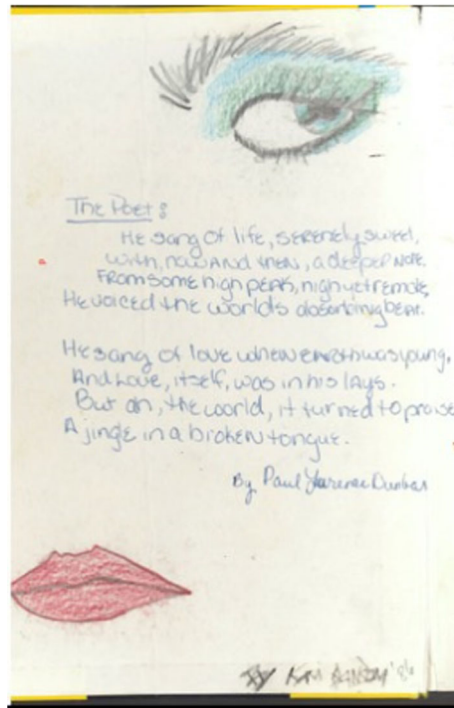 The Poet:
He sang of life, serenely sweet,
With, now and then, a deeper note.
From some high peak, nigh yet remote,
He voiced the worlds absorbing beat.
He sang of love when earth was young,
And Love, itself, was in his lays.
But ah, the world, it turned to praise
A jingle in a broken tongue.
By Paul Laurence Dunbar
By Kim '86